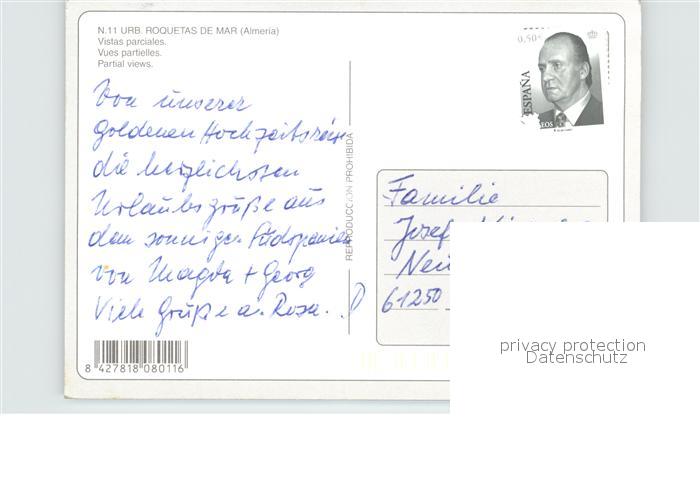 N.11 URB. ROQUETAS DE MAR (Almería)
Vistas parciales.
Vues partielles.
Partial views.
Von unserer
goldenen Hochzeitsreise
die herzlichsten
Urlaubsgrüße aus
dem sonnigen Südspanien
von Magda + Georg
Viele Grüße a. Rosa.
8 427818 080116
REPRODUCCIÓN PROHIBIDA
0,50€
ESPAÑA
Familie
Josef
61250
privacy protection
Datenschutz